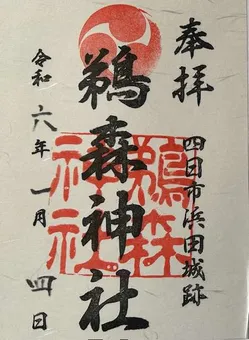 奉拝
四日市浜田城跡
鵜森神社
鵜森神社
令和六年一月四日